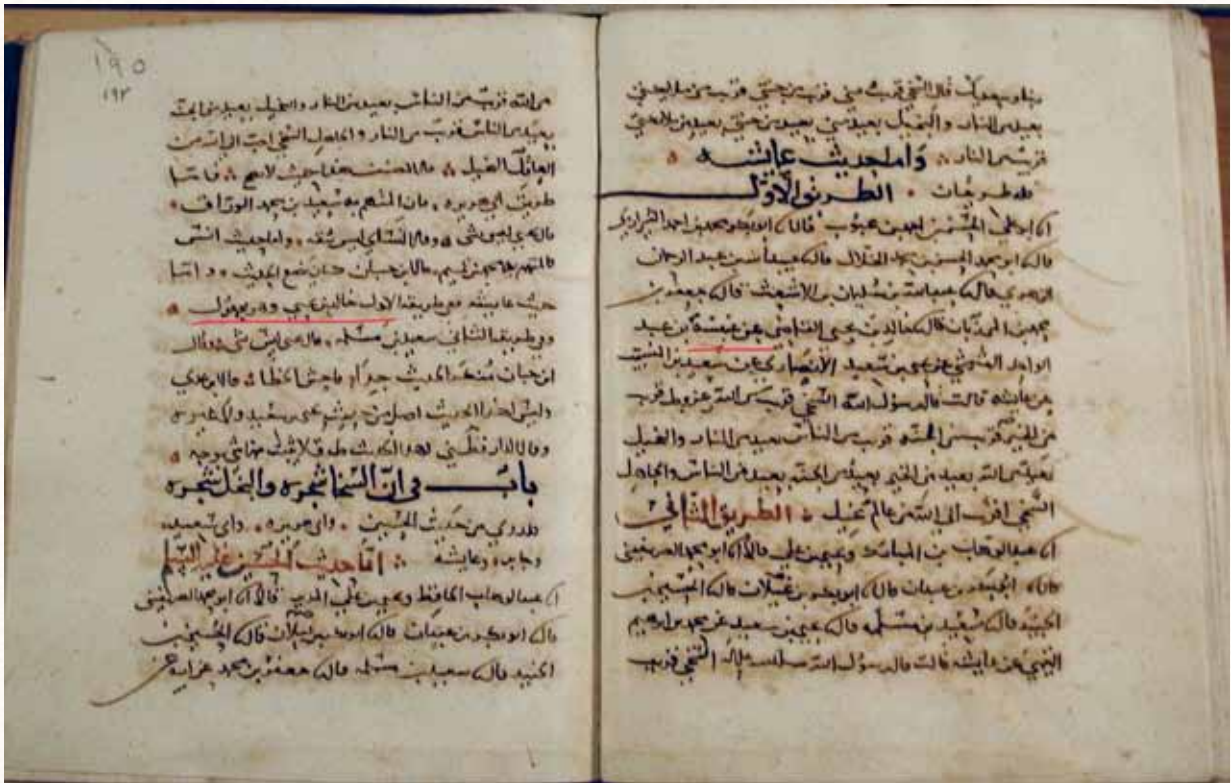 قال السخي قريب مني قريب من جنتي قريب من
بعيد من النار والبخيل بعيد مني بعيد من جنتي بعيد من
قريب من النار واما حديث عايشه
فله طريقان الطريق الأول
قال ابو محمد الحسن بن محمد الخلال قال
قال عبد الله بن سليمان بن الاشعث قال جعفر بن
محمد بن المرزبان قال خالد بن يحيى القاضي عن عنبسة بن عبد
الواحد القرشي عن يحيى بن سعيد الأنصاري عن سعيد بن المسيب
عن عايشه قالت قال رسول الله السخي قريب من الله عز وجل قريب
من الخير قريب من الجنه قريب من الناس بعيد من النار والبخيل
بعيد من الله بعيد من الخير بعيد من الجنه بعيد من الناس والجاهل
السخي اقرب الى الله من عالم بخيل الطريق الثاني
عبد الوهاب بن المبارك ويحيى بن علي قالا ابو محمد الصريفيني
قال ابو بكر بن عبدان قال الحسين بن
الجنيد قال سعيد بن مسلمه قال يحيى بن سعيد عن محمد بن ابرهيم
التيمي عن عايشه قالت قال رسول الله السخي قريب
١٩٥
١٩٢
من الله قريب من الناس بعيد من النار والبخيل بعيد من الله
بعيد من الناس قريب من النار والجاهل السخي احب الى الله من
العابد البخيل هذا حديث لا يصح فاما
طريق ابي هريره فان المتهم به سعيد بن محمد الوراق
قال يحيى ليس بشي وقال النسائي ليس بثقه واما حديث انس
فالمتهم به محمد بن تميم قال ابن حبان كان يضع الحديث واما
حديث عايشه ففي طريقه الاول خالد بن يحيى وهو مجهول
وفي طريقه الثاني سعيد بن مسلمه قال يحيى ليس بشي وقال
ابن حبان منكر الحديث جدا فاحش الخطا قال ابن عدي
وليس لهذا الحديث اصل من حديث يحيى بن سعيد ولا غيره
وقال الدارقطني لهذا الحديث طرق لا يثبت منها شي بوجه
باب في ان السخا شجره والبخل شجره
قد روي من حديث الحسين وابي هريره وابي سعيد
وجابر وعايشه اما حديث الحسين عليه السلم
عبد الوهاب الحافظ ويحيى بن علي قالا ابو محمد الصريفيني
قال ابو بكر بن عبدان قال الحسين بن
الجنيد قال سعيد بن مسلمه قال جعفر بن محمد عن ابيه عن